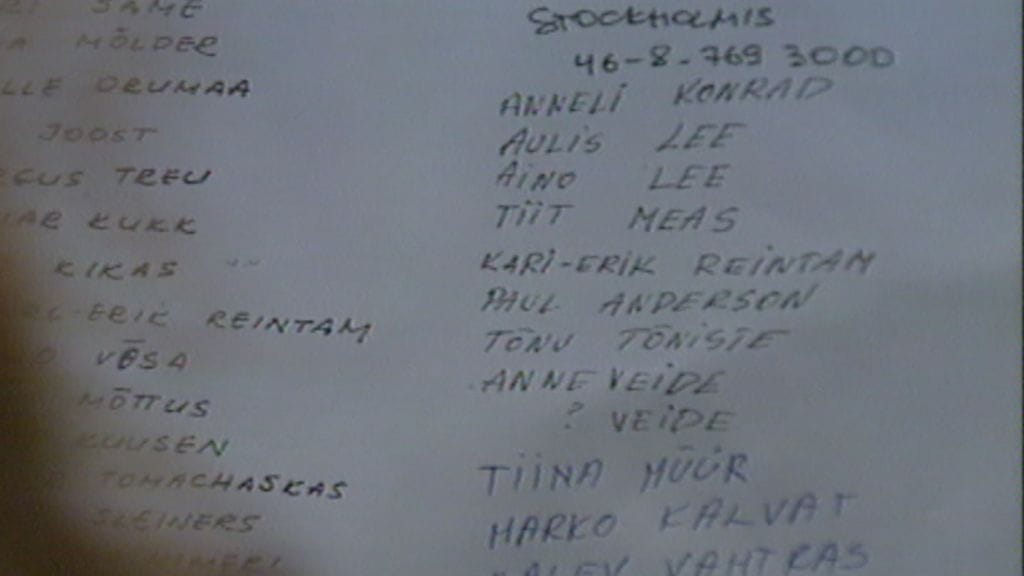 SAME
MÖLDER
ORUMAA
JOOST
TREU
KUKK
KIKAS
REINTAM
VÕSA
MÕTTUS
KUUSEN
TOMACHASKAS
SLEINERS
STOCKHOLMIS
46-8-769 3000
ANNELI KONRAD
AULIS LEE
AINO LEE
TIIT MEAS
KARI-ERIK REINTAM
PAUL ANDERSON
TÕNU TÕNISTE
ANNE VEIDE
? VEIDE
TIINA MÜÜR
MARKO KALVAT
KALEV VAHTRAS